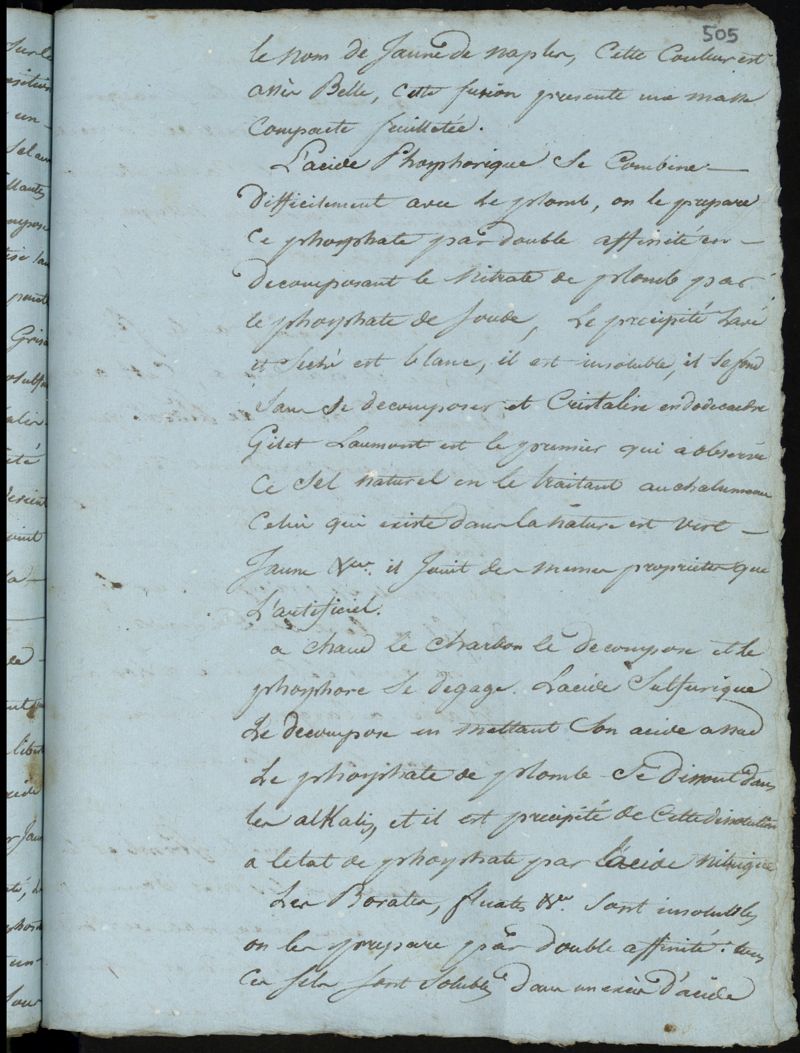 505
le nom de Jaune de naples, Cette Couleur est
assés Belle, cette fusion presente une masse
Compacte feuilletée.
L'acide Phosphorique Se Combine
Difficilement avec Le plomb, on le prepare
Ce phosphate par double affinité en
decomposant le Nitrate de plomb par
le phosphate de Soude, Le precipité Lavé
et Seché est blanc, il est insoluble, il se fond
Sans Se decomposer et Cristalise en dodecaedre
Gilet Laumont est le premier qui a observé
Ce Sel naturel en le traitant au chalumeau
Celui qui existe dans la nature est vert
Jaune &ca. il Jouit des memes proprietes que
L'artificiel.
a chaud le charbon le decompose et le
phosphore Se degage. L'acide Sulfurique
Le decompose en mettant Son acide a nud
Le phosphate de plomb Se Dissout dans
les alkalis, et il est precipité de Cette dissolution
a l'etat de phosphate par l'acide Nitrique
Les Borates, fluates &ca. Sont insolubles
on les prepare par double affinité. tous
ces sels sont Solubles dans un exces d'acide